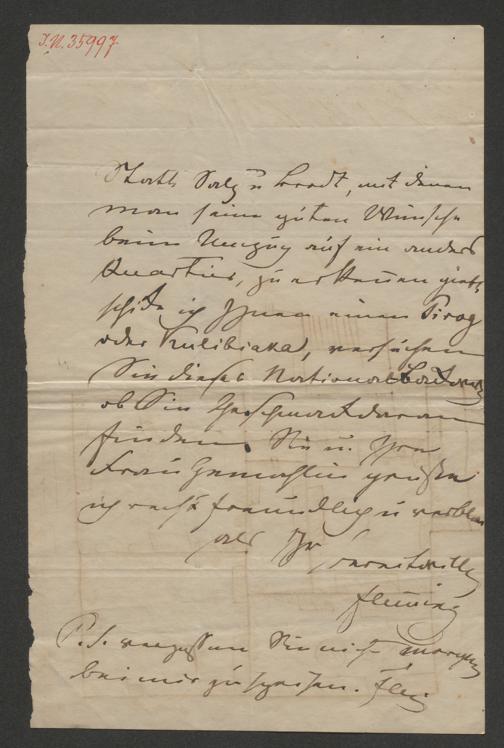 J.N. 35997
Statt Salz u Brodt, mit denen
man seine guten Wünsche
beim Umzug auf ein anders
Quartier, zu erkennen giebt,
schicke ich Ihnen einen Pirog
oder Kulibiaka, versuchen
Sie dieses National
ob Sie Geschmack daran
finden. Sie u. Ihre
Frau Gemahlin grüße
ich recht freundlich u verbleibe
als Ihr
P.S. vergessen Sie nicht morgen
bei mir zu speisen.